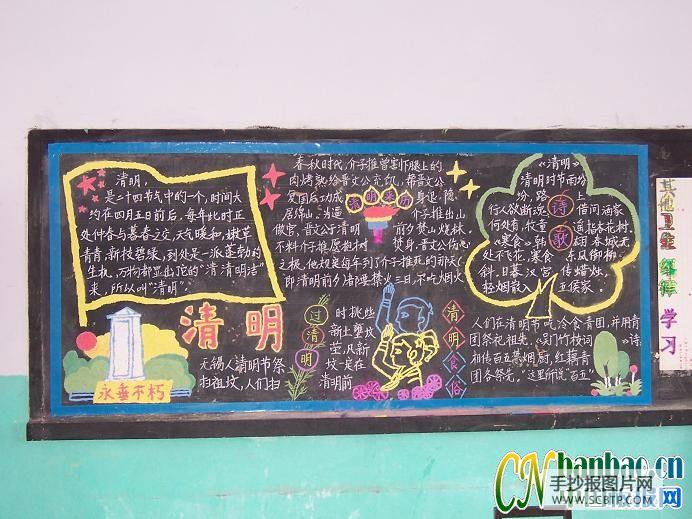 清明,
是二十四节气中的一个,时间大
约在四月五日前后,每年此时正
处仲春与暮春之交,天气暖和,嫩草
青青,新枝碧绿,到处是一派蓬勃的
生机,万物都显出它的"清清明洁"
来,所以叫"清明"。
清明
永垂不朽
无锡人清明节祭
扫祖坟,人们扫
春秋时代,介子推曾割下腿上的
肉烤熟给晋文公充饥,帮晋文公
复国后功成身退,隐
居绵山,为逼介子推出山
做官,晋文公于清明前夕焚山烧林,
不料介子推愿抱树焚身,晋文公伤心
之极,他规定每年到了介子推死的那天(
即清明前夕)诸理禁火三日,不吃烟火
清明来历
过清明
时挑些
新土壅坟
茔,凡新
坟一定在
清明前
《清明》
清明时节雨纷
纷,路上
行人欲断魂。借问酒家
何处有,牧童遥指杏花村。
《寒食》韩翃春城无
处不飞花,寒食东风御柳
斜。日暮汉宫传蜡烛,
轻烟散入五侯家。
诗歌
清明食俗
人们在清明节吃冷食青团,并用青
团祭祀祖先。《吴门竹枝词》诗:
相传百五禁烟厨,红藕青
团各祭先,"这里所说"百五"
其他卫生 纪律 学习
CNbanbao.cn
手抄报图片网
WWW.SCBTP.COM